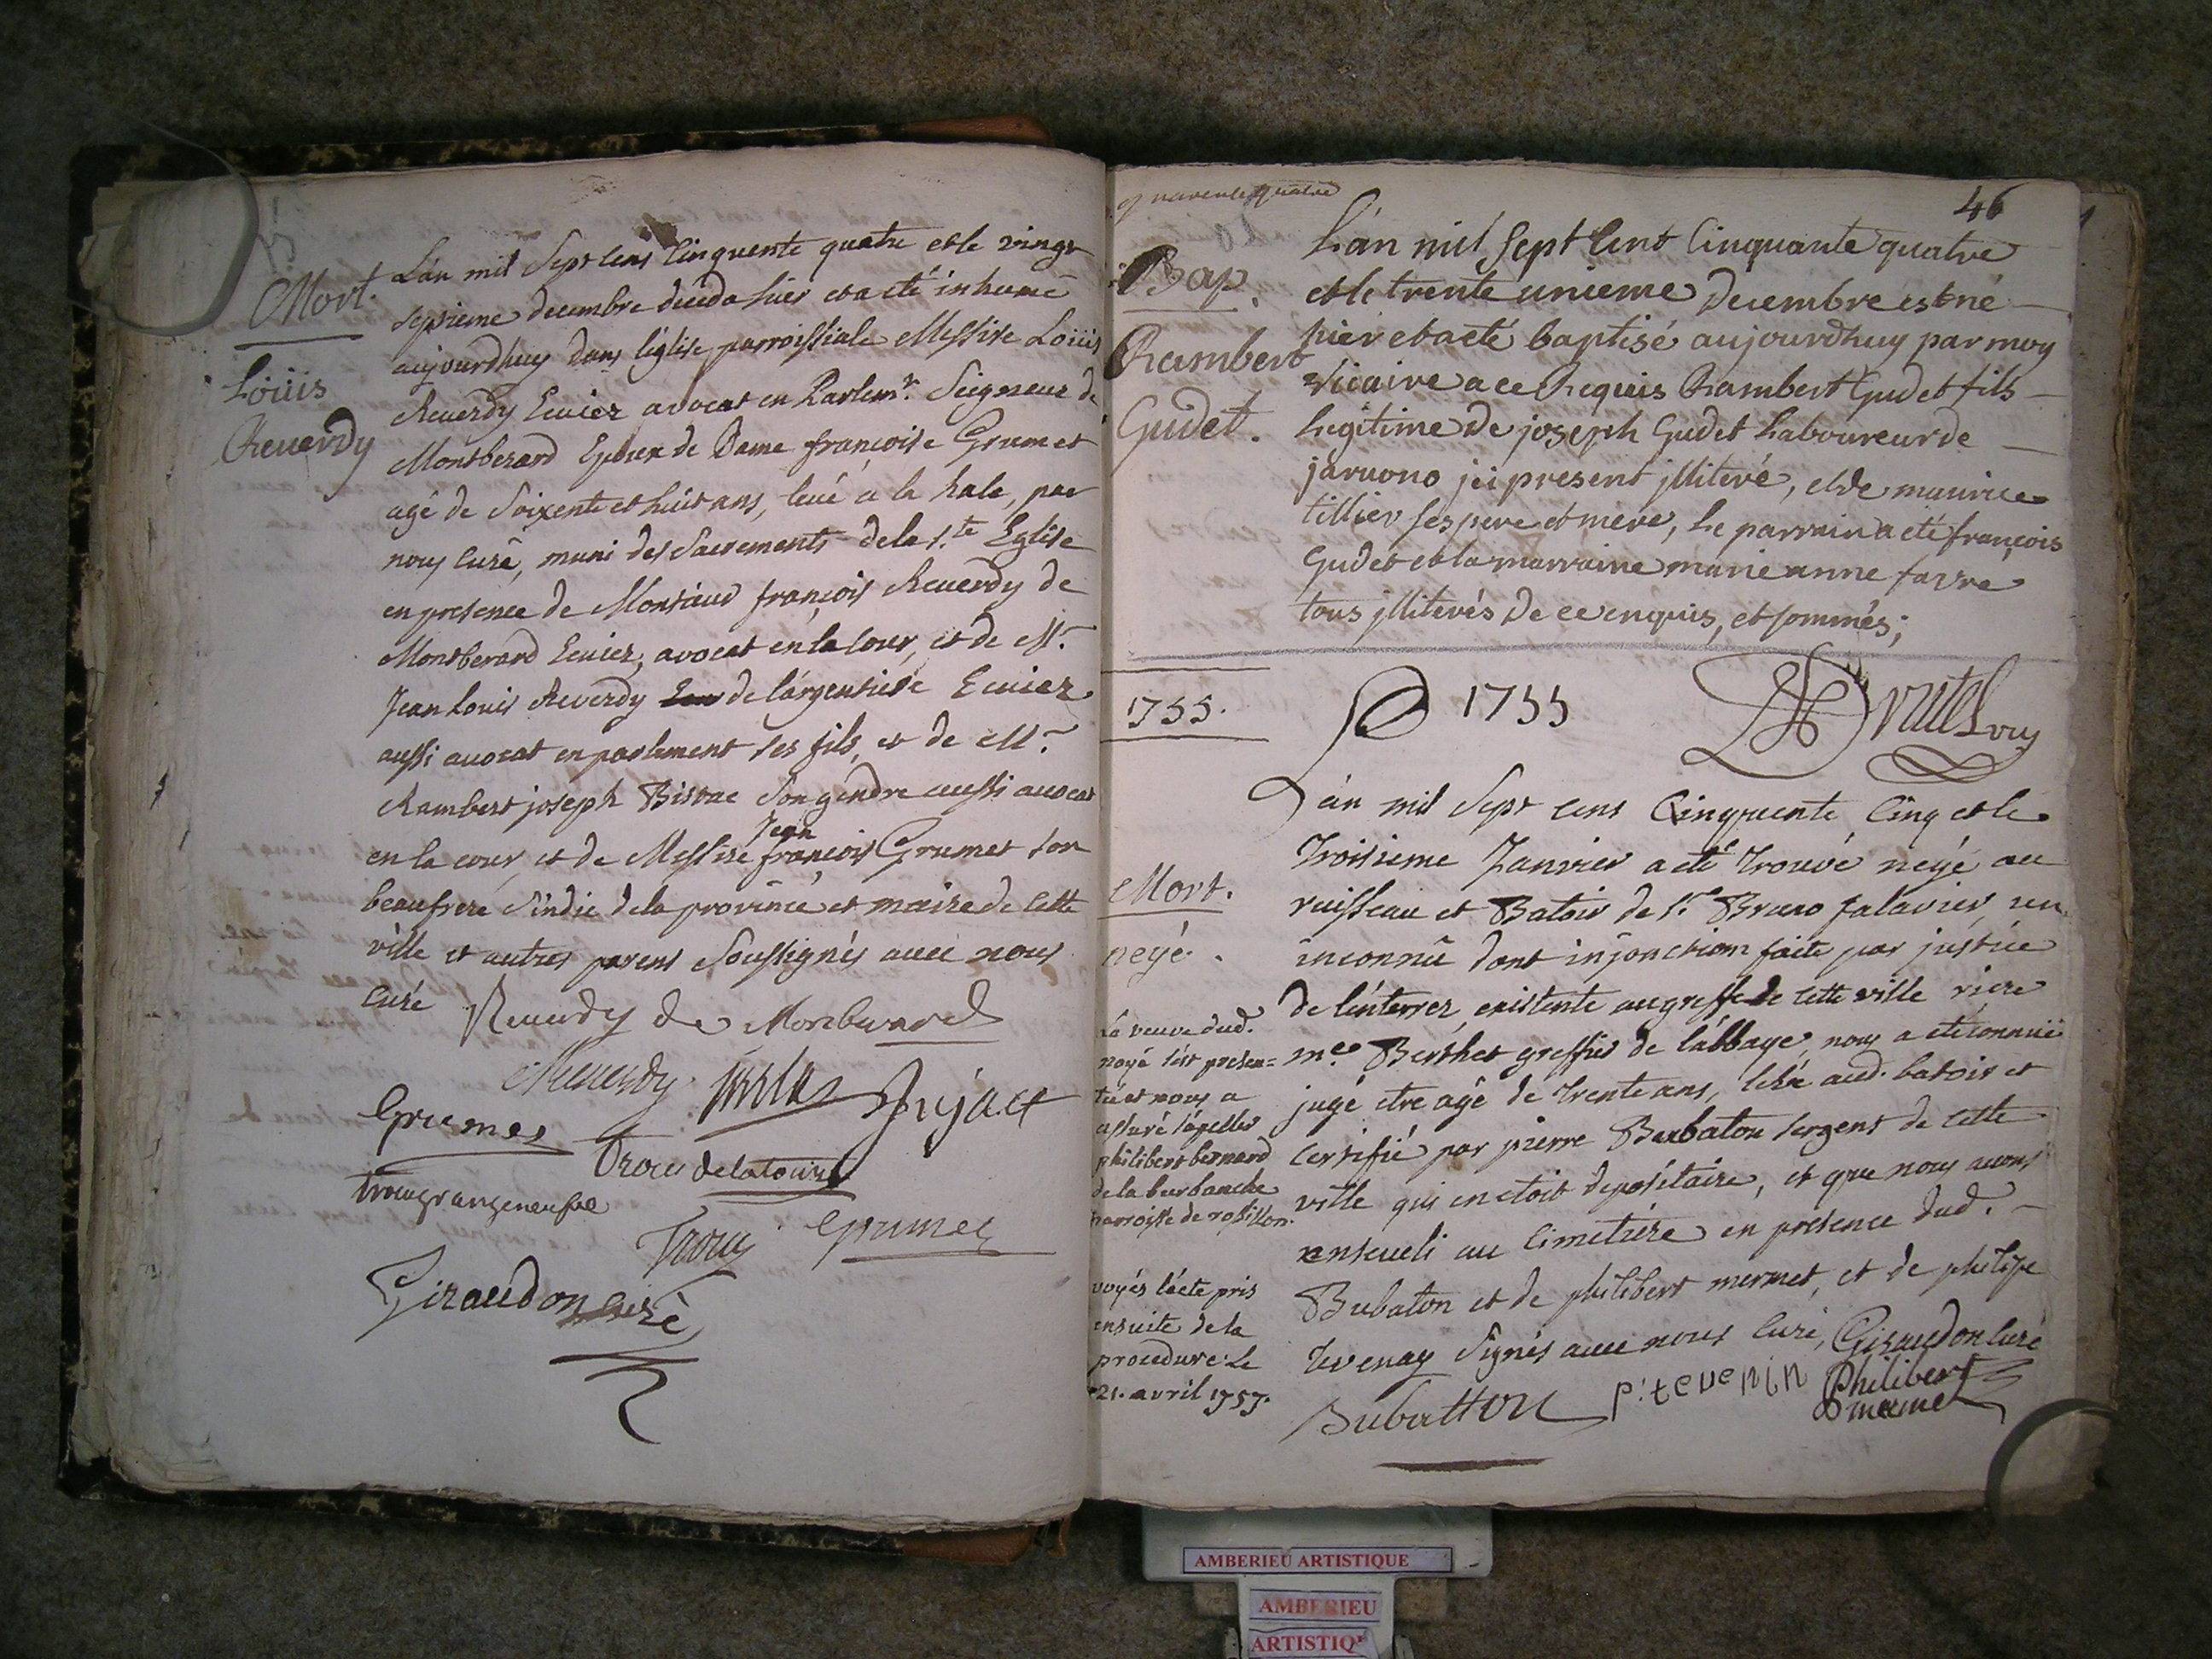 Mort.
Loüis
Reverdy
L'an mil Sept cens Cinquente quatre et le vingt
septieme decembre décéda hier et a eté inhumé
aujourdhuy dans l'église parroissiale Messire Loüis
Reverdy Ecuier avocat en Parlem.t Seigneur de
Montberard Epoux de Dame françoise Grumet
agé de Soixente et huit ans, levé à la hale, par
nous curé, muni des Sacrements de la s.te Eglise
en presence de Monsieur françois Reverdy de
Montberard Ecuier, avocat en la Cour, et de M.r
Jean Louis Reverdy de l'argentiere Ecuier
aussi avocat en parlement ses fils, et de M.r
Rambert joseph Son gendre aussi avocat
en la cour, et de Messire Jean françois Grumet son
beaufrere Sindic de la province et maire de Cette
ville et autres parens Soussignés avec nous
Curé Reverdy de Montberard
Reverdy
Grumet
Trocu delatour
trocu grangeneufve
Trocu Grumet
Giraudon curé
quarente quatre
46
Bap.
Rambert
Gudet.
L'an mil sept Cent Cinquante quatre
et le trente unieme Decembre est né
hier et a eté baptisé aujourdhuy par moy
vicaire a ce Requis Rambert Gudet fils
legitime de joseph Gudet Laboureur de
javuono jci present jlliteré, et de maurice
tillier ses pere et mere, Le parrain a eté françois
Gudet et la marraine marie anne favre
tous jlliterés de ce enquis, et sommés;
1755.
1755
Mort.
neyé.
L'an mil Sept cens Cinquente Cinq et le
Troisieme Janvier a eté trouvé neyé au
ruisseau et Batoir de s.r Bruno falavier, un
inconnû dont injonction faite par justice
de l'enterrer, existente au greffe de cette ville riere
m.e Berthet greffier de l'abbaye, nous a eté connuë
jugé etre agé de trente ans, levé aud. batoir et
Certifié par pierre Bubaton sergent de cette
ville qui en etoit depositaire, et que nous avons
enseveli au Cimetiere en presence dud.
Bubaton et de philibert mermet, et de philipe
tevenay Signés avec nous Curé, Giraudon curé
Bubatton p. tevenin Philibert
mermet
La veuve dud.
noyé s'est presen=
tée et nous a
assuré s'apeller
philibert bernard
de la burbanche
parroisse de rossillon.
voyés l'acte pris
ensuite de la
procedure Le
21. avril 1757.
AMBERIEU ARTISTIQUE
AMBERIEU
ARTISTIQ